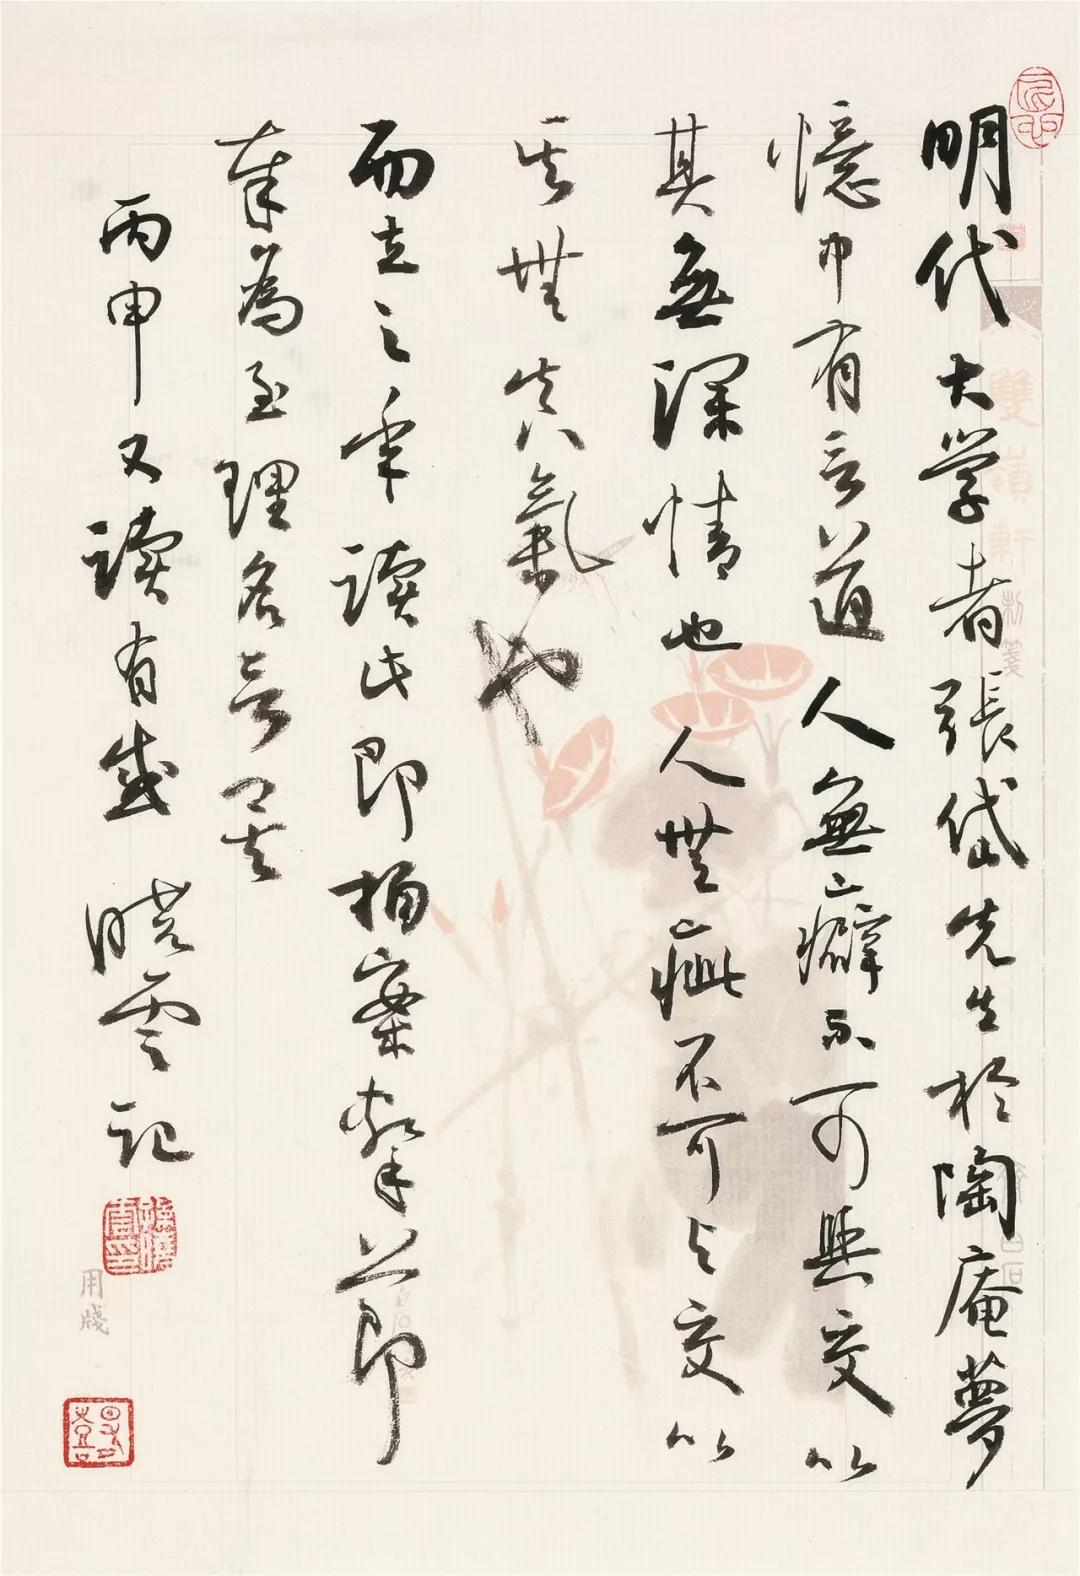 明代大学者張岱先生於陶庵夢
憶中有言道人無癖不可與交以
其無深情也人無疵不可与交以
其無真氣也
而立之年讀此即拍案擊節
奉為至理名言矣
丙申又讀有感 晓雲記
雙嶺軒制箋
用牋